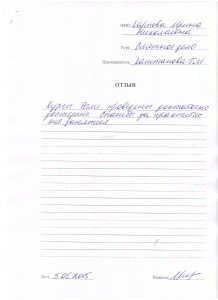 ФИО Карпова Ирина
Николаевна
Курс
Преподаватель Калитанова Г.М
ОТЗЫВ
Курсы были проведены достаточно
доступно. Спасибо за практичес
кие занятия.
Дата 5.05.2015 Подпись